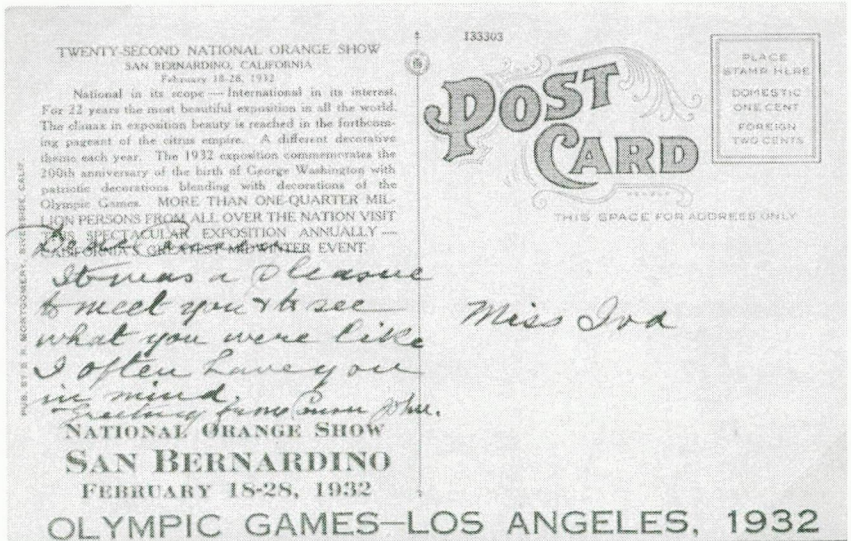 TWENTY-SECOND NATIONAL ORANGE SHOW
SAN BERNARDINO, CALIFORNIA
February 18-28, 1932
National in its scope — International in its interest.
For 22 years the most beautiful exposition in all the world.
The climax in exposition beauty is reached in the forthcom-
ing pageant of the citrus empire. A different decorative
theme each year. The 1932 exposition commemorates the
200th anniversary of the birth of George Washington with
patriotic decorations blending with decorations of the
Olympic Games. MORE THAN ONE-QUARTER MIL-
LION PERSONS FROM ALL OVER THE NATION VISIT
THIS SPECTACULAR EXPOSITION ANNUALLY —
CALIFORNIA'S GREATEST MIDWINTER EVENT.
Dear
It was a pleasue
to meet you & to see
what you were like
I often have you
in mind
Greeting from Cousin John.
NATIONAL ORANGE SHOW
SAN BERNARDINO
FEBRUARY 18-28, 1932
OLYMPIC GAMES—LOS ANGELES, 1932
PUB. BY S. R. MONTGOMERY, RIVERSIDE, CALIF.
133303
POST
CARD
THIS SPACE FOR ADDRESS ONLY
PLACE
STAMP HERE
DOMESTIC
ONE CENT
FOREIGN
TWO CENTS
Miss Iva